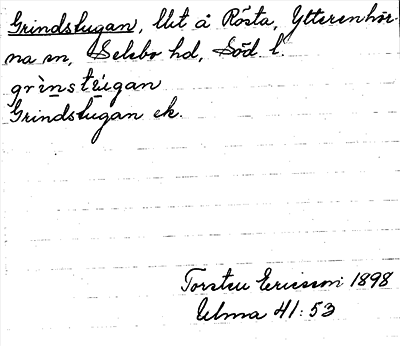 Grindstugan, llit å Rösta, Ytterenhör-
na sn, Selebo hd, Söd. l.
grìnstʉ́gan
Grindstugan ek.
Torsten Ericsson 1898
Ulma 41:53